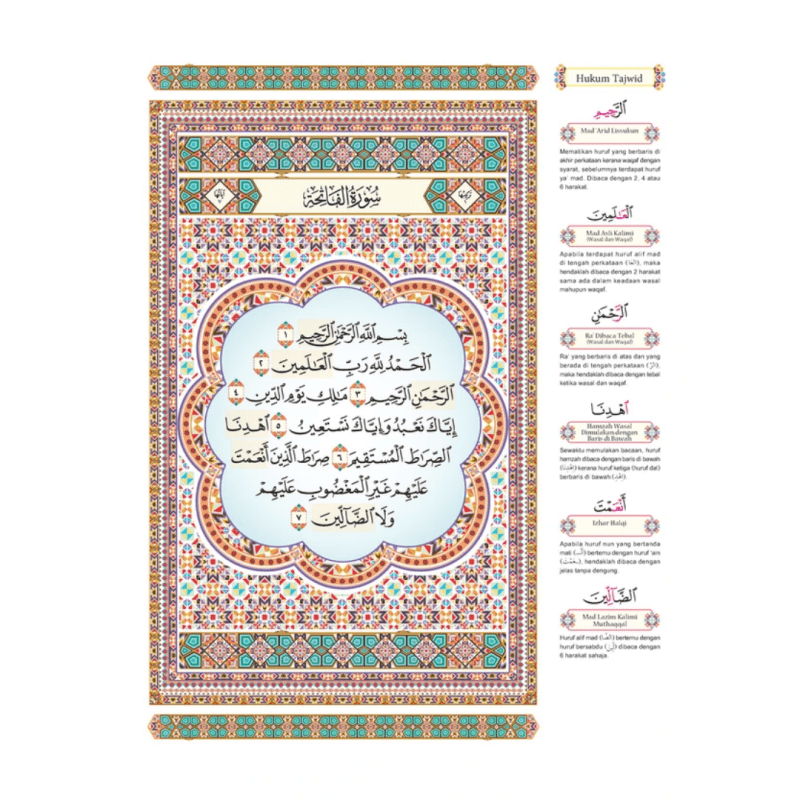 سُورَةُ الْفَاتِحَةِ
بِسْمِ اللَّهِ الرَّحْمَٰنِ الرَّحِيمِ ١
الْحَمْدُ لِلَّهِ رَبِّ الْعَالَمِينَ ٢
الرَّحْمَٰنِ الرَّحِيمِ ٣ مَالِكِ يَوْمِ الدِّينِ ٤
إِيَّاكَ نَعْبُدُ وَإِيَّاكَ نَسْتَعِينُ ٥ اهْدِنَا
الصِّرَاطَ الْمُسْتَقِيمَ ٦ صِرَاطَ الَّذِينَ أَنْعَمْتَ
عَلَيْهِمْ غَيْرِ الْمَغْضُوبِ عَلَيْهِمْ
وَلَا الضَّالِّينَ ٧
Hukum Tajwid
الرَّحِيمِ
Mad 'Arid Lissukun
Mematikan huruf yang berbaris di
akhir perkataan kerana waqaf dengan
syarat, sebelumnya terdapat huruf
ya' mad. Dibaca dengan 2, 4 atau
6 harakat.
الْعَالَمِينَ
Mad Asli Kalimi
(Wasal dan Waqaf)
Apabila terdapat huruf alif mad
di tengah perkataan (الْعَا), maka
hendaklah dibaca dengan 2 harakat
sama ada dalam keadaan wasal
mahupun waqaf.
الرَّحْمَٰنِ
Ra' Dibaca Tebal
(Wasal dan Waqaf)
Ra' yang berbaris di atas dan yang
berada di tengah perkataan (الرَّ),
maka hendaklah dibaca dengan tebal
ketika wasal dan waqaf.
اهْدِنَا
Hamzah Wasal
Dimulakan dengan
Baris di Bawah
Sewaktu memulakan bacaan, huruf
hamzah dibaca dengan baris di bawah
(اِهْدِنَا) kerana huruf ketiga (huruf dal)
berbaris di bawah (اِهْدِ).
أَنْعَمْتَ
Izhar Halqi
Apabila huruf nun yang bertanda
mati () bertemu dengan huruf 'ain
(), hendaklah dibaca dengan
jelas tanpa dengung.
الضَّالِّينَ
Mad Lazim Kalimi
Muthaqqal
Huruf alif mad (الضَّا) bertemu dengan
huruf bersabdu (لِّين) dibaca dengan
6 harakat sahaja.